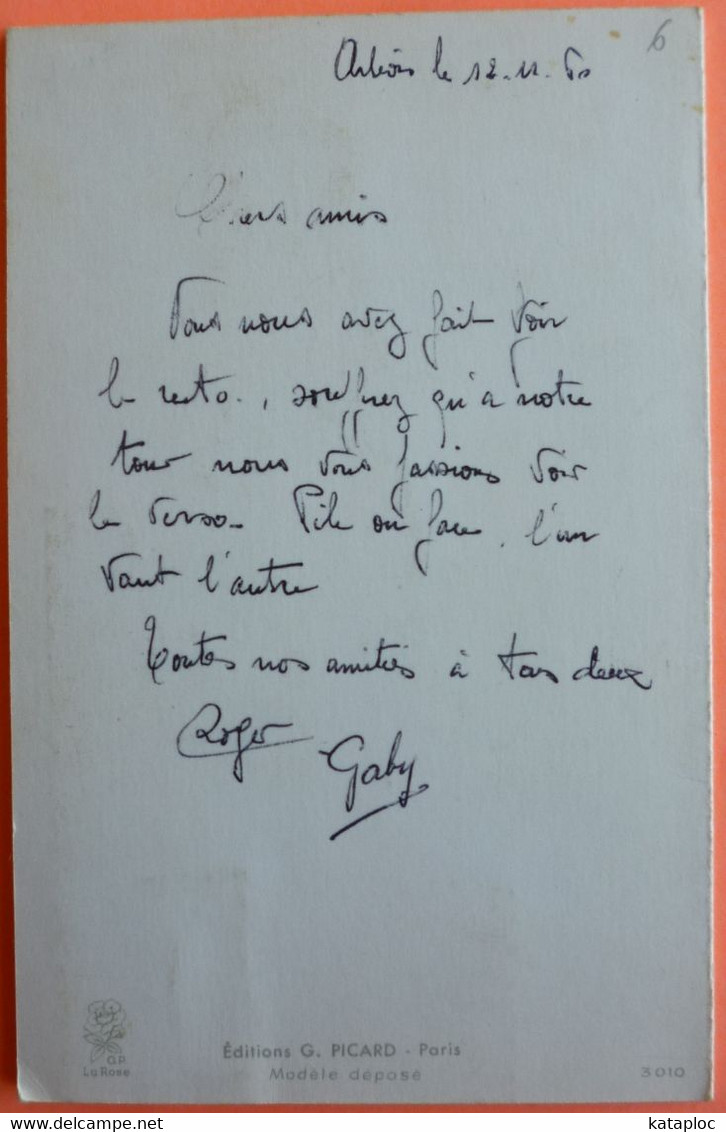 6
Arbois le 12.11.60
Chers amis
Vous nous avez fait voir
le recto., souffrez qu'à notre
tour nous vous fassions voir
le verso. Pile ou face, l'un
vaut l'autre
Toutes nos amitiés à tous deux
Roger
Gaby
G.P.
La Rose
Éditions G. PICARD - Paris
Modèle déposé
3010
kataploc